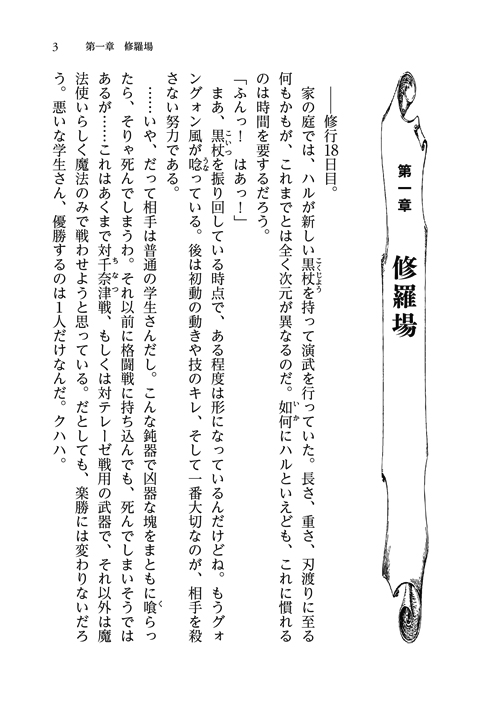 3　第一章　修羅場
第一章
修羅場
――修行18日目。
　家の庭では、ハルが新しい黒杖を持って演武を行っていた。長さ、重さ、刃渡りに至る
何もかもが、これまでとは全く次元が異なるのだ。如何にハルといえども、これに慣れる
のは時間を要するだろう。
「ふんっ！　はあっ！」
　まあ、黒杖を振り回している時点で、ある程度は形になっているんだけどね。もうグォ
ングォン風が唸っている。後は初動の動きや技のキレ、そして一番大切なのが、相手を殺
さない努力である。
　……いや、だって相手は普通の学生さんだし。こんな鈍器で凶器な塊をまともに喰らっ
たら、そりゃ死んでしまうわ。それ以前に格闘戦に持ち込んでも、死んでしまいそうでは
あるが……これはあくまで対千奈津戦、もしくは対テレーゼ戦用の武器で、それ以外は魔
法使いらしく魔法のみで戦わせようと思っている。だとしても、楽勝には変わりないだろ
う。悪いな学生さん、優勝するのは１人だけなんだ。クハハ。